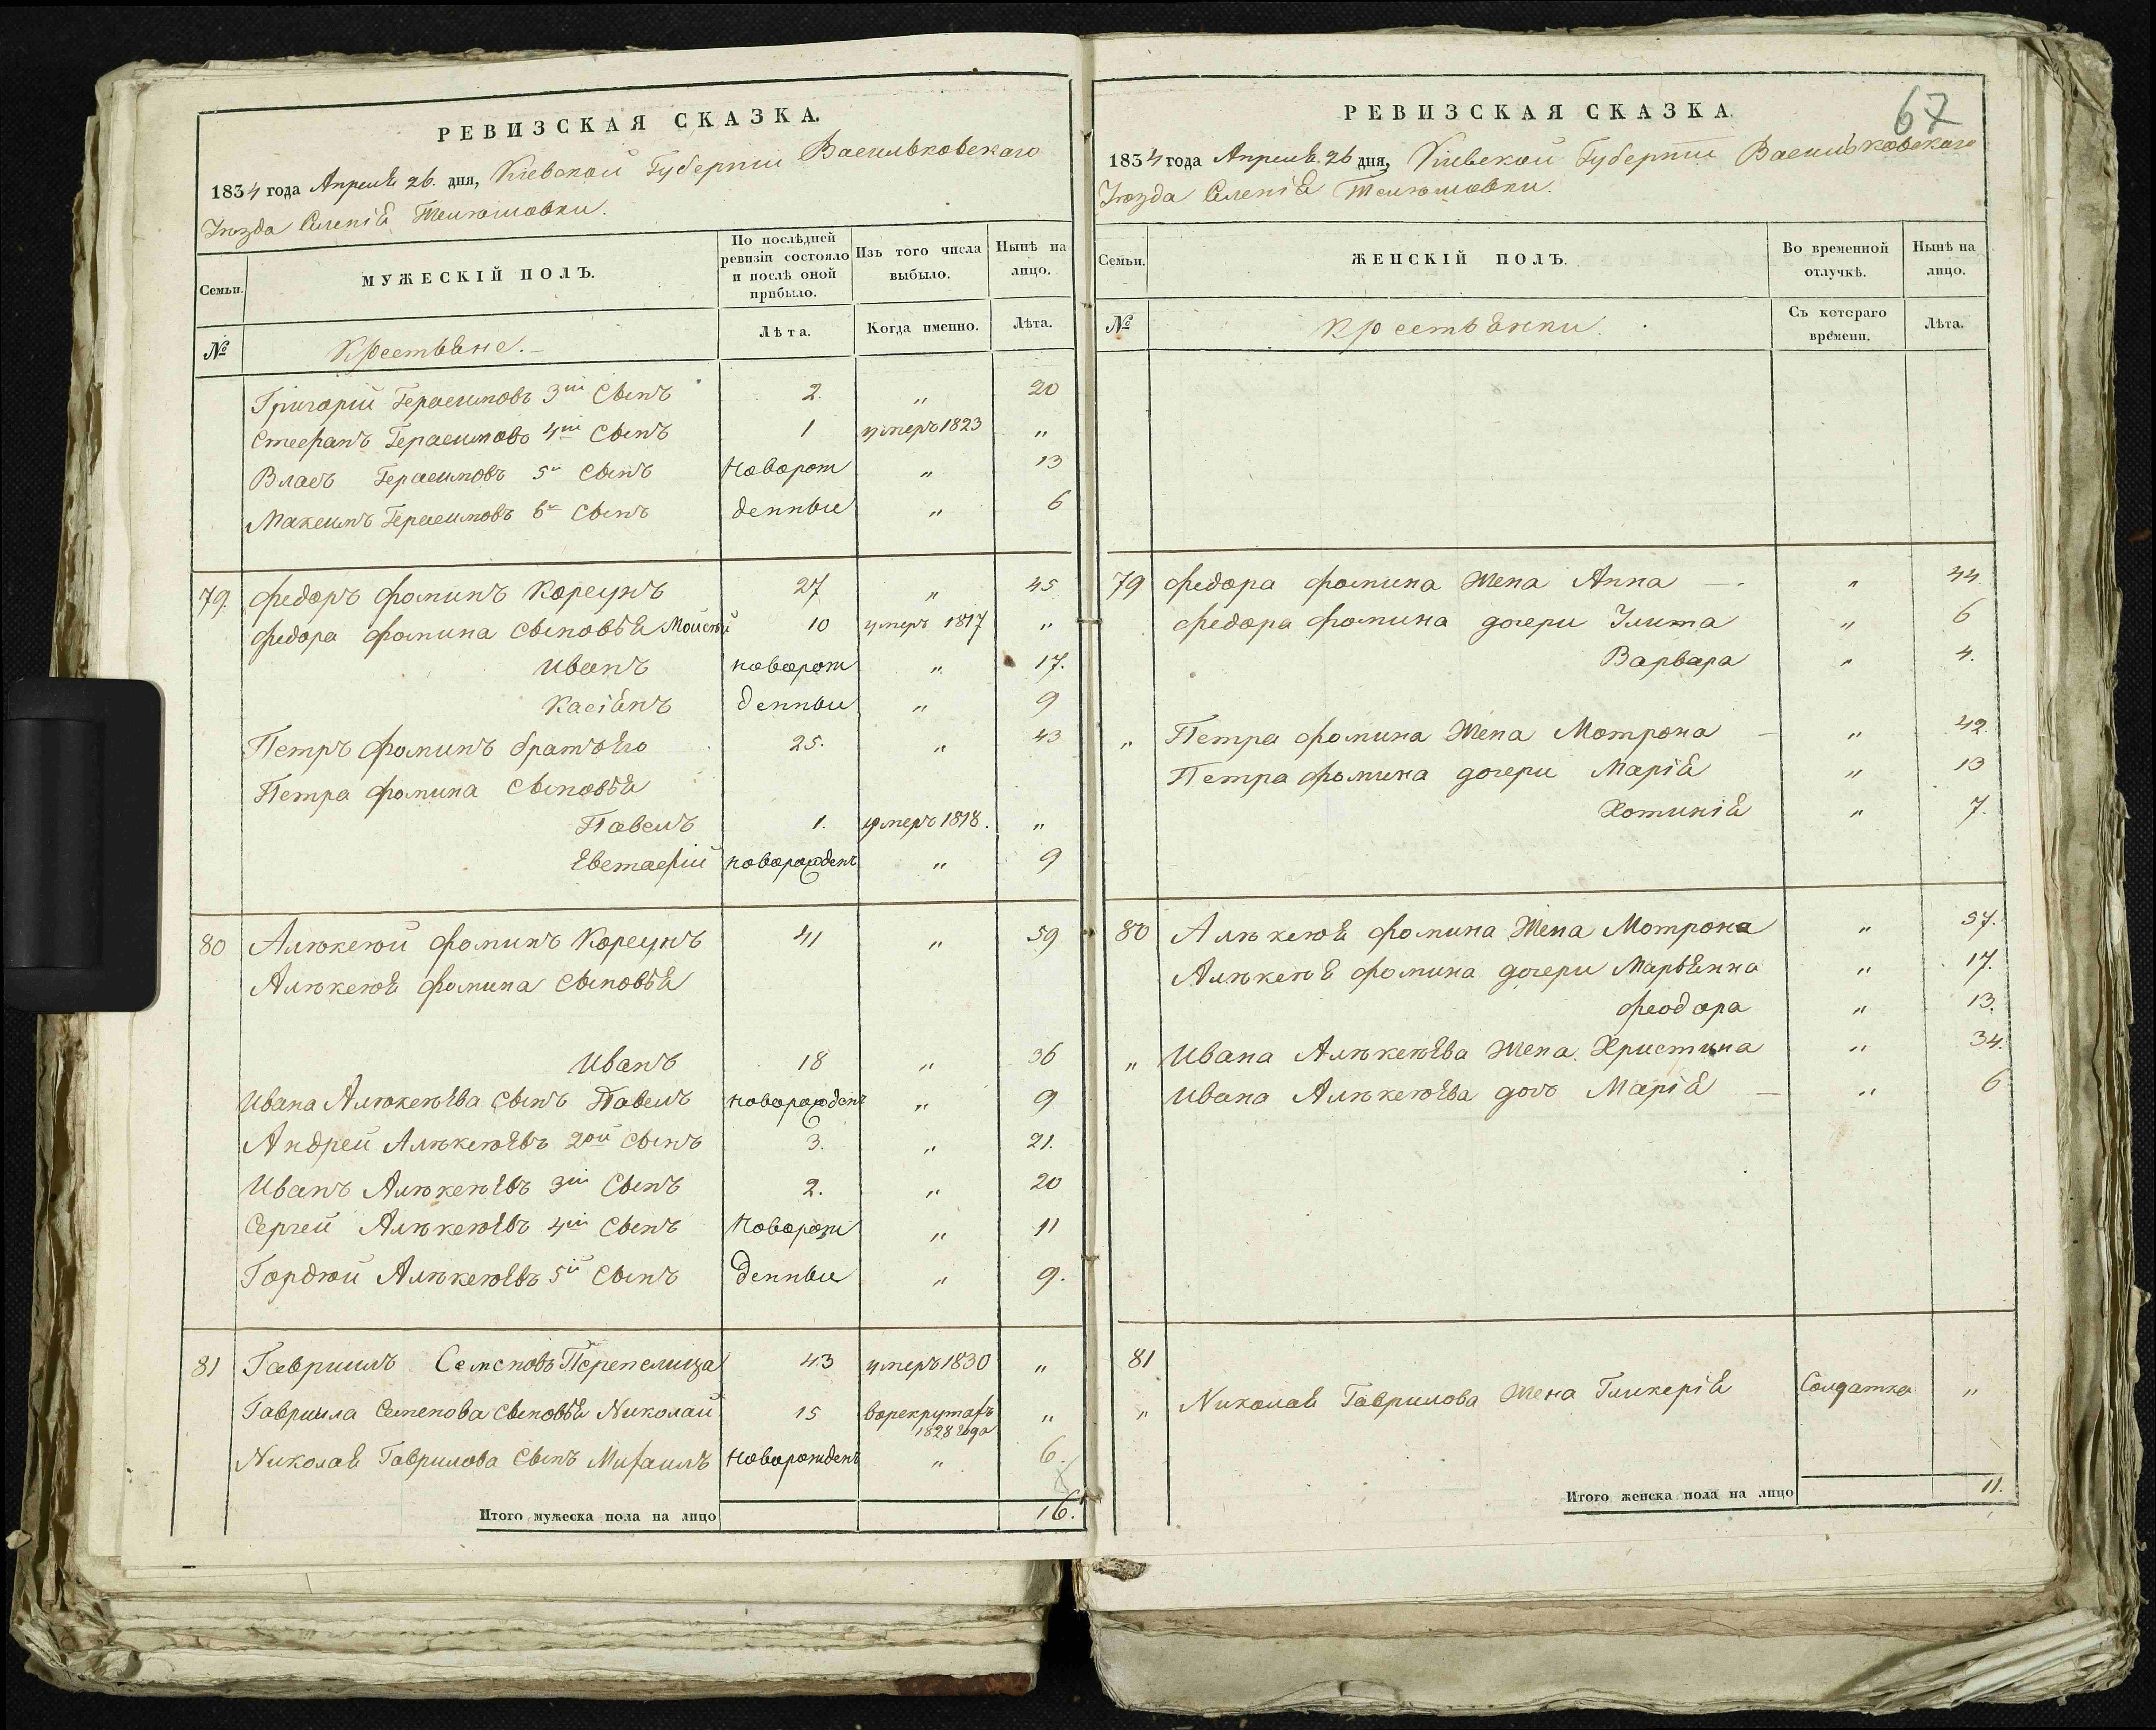 РЕВИЗСКАЯ СКАЗКА.
1834 года Апреля 26. дня, Кіевской Губерніи Васильковскаго
Уезда Селенія Телюшовки.
Семьи. МУЖЕСКІЙ ПОЛЪ. По послѣдней ревизіи состояло и послѣ оной прибыло. Изъ того числа выбыло. Нынѣ на лицо.
№ Крестьяне. Лѣта. Когда именно. Лѣта.
Григорій Герасимовъ 3ій Сынъ 2. " 20
Стефанъ Герасимовъ 4ій Сынъ 1 умеръ 1823 "
Власъ Герасимовъ 5й Сынъ Новорож " 13
Максимъ Герасимовъ 6й Сынъ денныи " 6
79. Федоръ Фоминъ Корсунъ 27 " 45
Федора Фомина Сыновья Мойсей 10 умеръ 1817 "
Иванъ новорож " 17.
Касіянъ денныи " 9
Петръ Фоминъ братъ Его 25. " 43
Петра Фомина Сыновья
Павелъ 1. умеръ 1818. "
Евстафій новорожденъ " 9
80 Алѣксѣй Фоминъ Корсунъ 41 " 59
Алѣксѣя Фомина Сыновья
Иванъ 18 " 36
Ивана Алѣксѣева Сынъ Павелъ новорожденъ " 9
Андрей Алѣксѣевъ 2ой Сынъ 3. " 21.
Иванъ Алѣксѣевъ 3ій Сынъ 2. " 20
Сергей Алѣксѣевъ 4ій Сынъ Новорож " 11
Гордѣй Алѣксѣевъ 5й Сынъ денныи " 9.
81 Гавриилъ Семеновъ Перепелица 43 умеръ 1830 "
Гавриила Семенова Сыновья Николай 15 ворекрутахъ 1828 года "
Николая Гаврилова Сынъ Михаилъ Новорожденъ " 6.
Итого мужеска пола на лицо 16.
67
РЕВИЗСКАЯ СКАЗКА.
1834 года Апреля. 26 дня, Кіевской Губерніи Васильковскаго
Уезда Селенія Телюшовки.
Семьи. ЖЕНСКІЙ ПОЛЪ. Во временной отлучкѣ. Нынѣ на лицо.
№ Крестьянки. Съ котораго времени. Лѣта.
79 Федора Фомина Жена Анна " 44
Федора Фомина дочери Улита " 6
Варвара " 4.
" Петра Фомина Жена Мотрона " 42.
Петра Фомина дочери Марія " 13
Хотинія " 7.
80 Алѣксѣя Фомина Жена Мотрона " 57.
Алѣксѣя Фомина дочери Марьянна " 17.
Феодора " 13.
" Ивана Алѣксѣева Жена Христина " 34.
Ивана Алѣксѣева дочь Марія " 6
81
" Николая Гаврилова Жена Гликерія Солдатка "
Итого женска пола на лицо 11.